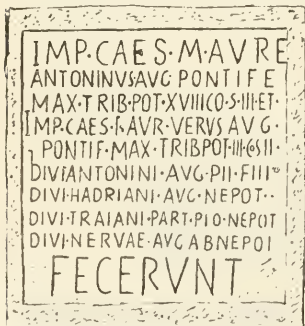 IMP·CAES·M·AVRE
ANTONINVS·AVG PONTIFE
MAX·TRIB·POT·XVIIICO·S·III·ET·
IMP·CAES·L·AVR·VERVS AVG·
PONTIF·MAX·TRIBPOT·III·COSII·
DIVI·ANTONINI·AVG·PII·FIII
DIVI·HADRIANI·AVG·NEPOT··
DIVI·TRAIANI·PART·PIO·NEPOT
DIVI·NERVAE·AVGABNEPOI
FECERVNT